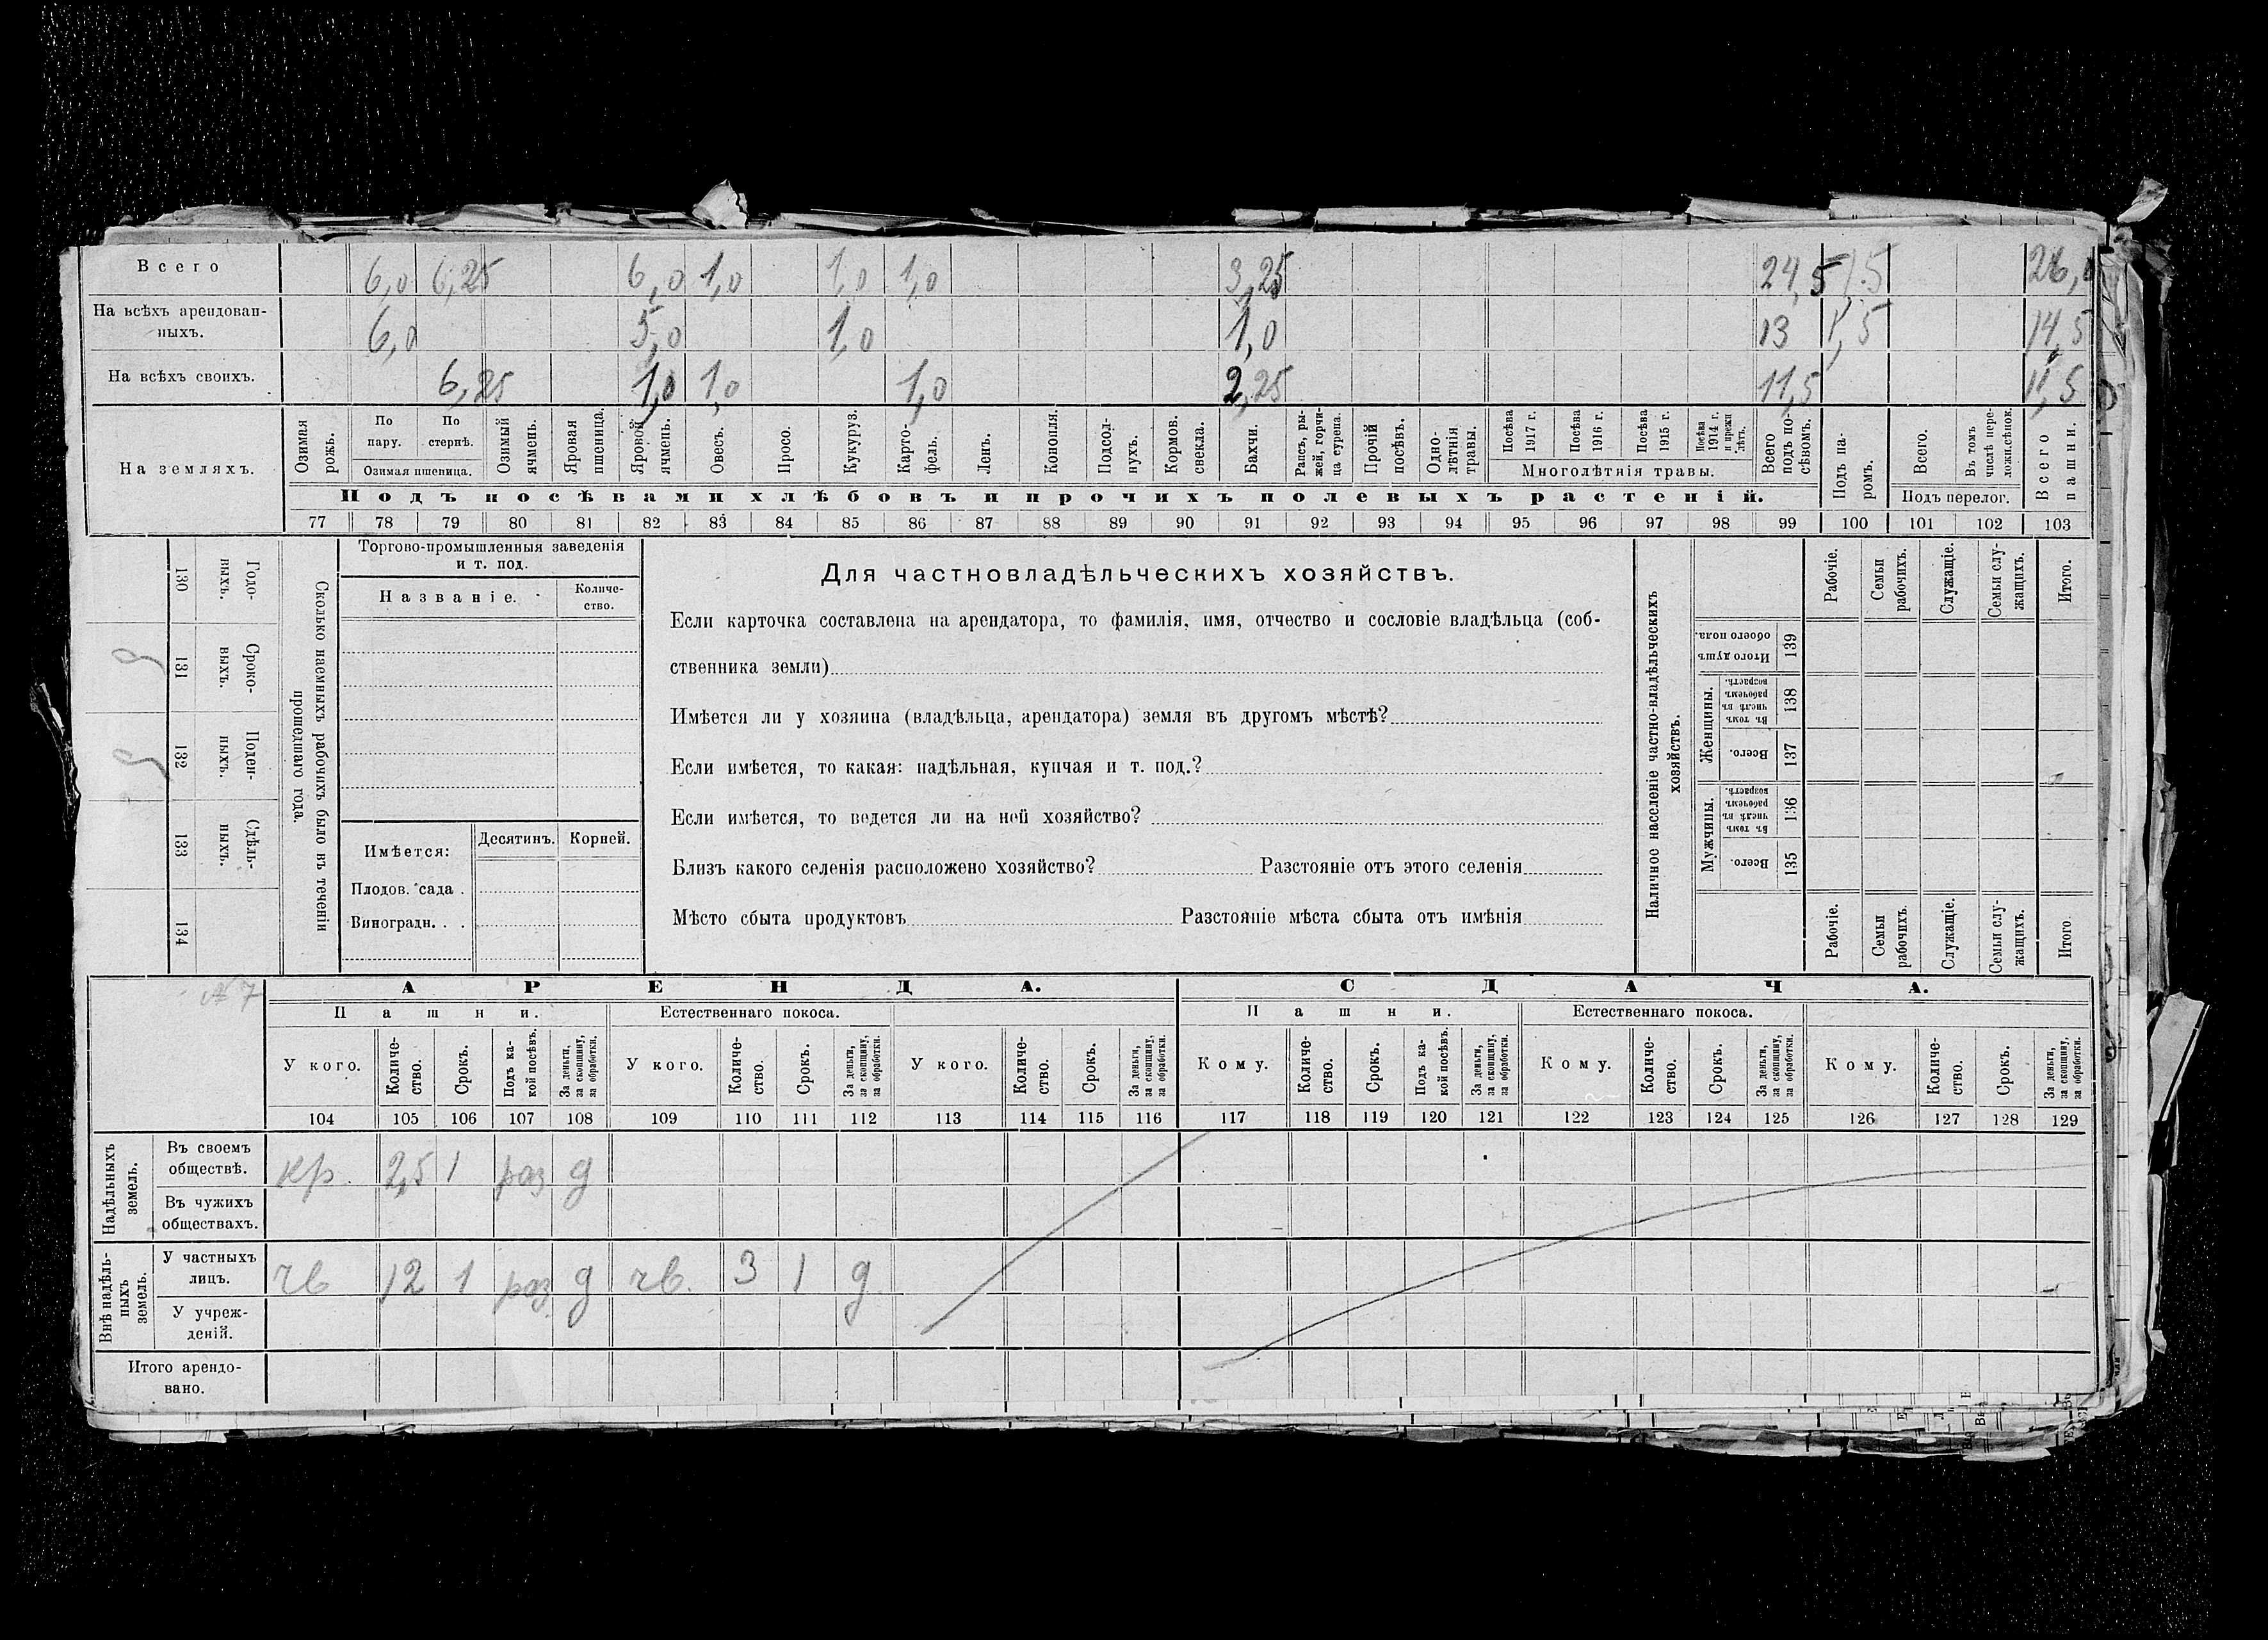 Всего 6,0 6,25 6,0 1,0 1,0 1,0 3,25 24,5 1,5 26,0
На всѣхъ арендован-
ныхъ. 6,0 5,0 1,0 1,0 13 1,5 14,5
На всѣхъ своихъ. 6,25 1,0 1,0 1,0 2,25 11,5 11,5
На земляхъ.
Озимая рожь.
По пару.
По стернѣ.
Озимая пшеница.
Озимый ячмень.
Яровая пшеница.
Яровой ячмень.
Овесъ.
Просо.
Кукуруз.
Карто-
фель.
Ленъ.
Конопля.
Подсол-
нухъ.
Кормов. свекла.
Бахчи.
Рапсъ, ры-
жей, горчи-
ца сурепа.
Прочій посѣвъ.
Одно-
лѣтнія травы.
Посѣва 1917 г.
Посѣва 1916 г.
Посѣва 1915 г.
Посѣва 1914 г. и прежн лѣтъ.
Многолѣтнія травы.
Всего подъ по-
сѣвомъ.
Подъ па-
ромъ.
Всего.
Въ томъ числѣ пере-
ложн.сѣнок.
Подъ перелог.
Всего пашни.
Подъ посѣвами хлѣбовъ и прочихъ полевыхъ растеній.
77 78 79 80 81 82 83 84 85 86 87 88 89 90 91 92 93 94 95 96 97 98 99 100 101 102 103
Сколько наемныхъ рабочихъ было въ теченіи
прошедшаго года.
Годо-
выхъ.
130
Сроко-
выхъ.
131
Поден-
ныхъ.
132
Сдѣль-
ныхъ.
133
134
Торгово-промышленныя заведенія
и т. под.
Названіе.
Количе-
ство.
Имѣется:
Десятинъ.
Корней.
Плодов. сада .
Виноградн. . .
Для частновладѣльческихъ хозяйствъ.
Если карточка составлена на арендатора, то фамилія, имя, отчество и сословіе владѣльца (соб-
ственника земли)
Имѣется ли у хозяина (владѣльца, арендатора) земля въ другомъ мѣстѣ?
Если имѣется, то какая: надѣльная, купчая и т. под.?
Если имѣется, то ведется ли на ней хозяйство?
Близъ какого селенія расположено хозяйство? Разстояніе отъ этого селенія
Мѣсто сбыта продуктовъ Разстояніе мѣста сбыта отъ имѣнія
Наличное населеніе частно-владѣльческихъ
хозяйствъ.
Рабочіе.
Семьи рабочихъ.
Служащіе.
Семьи слу-
жащихъ.
Итого.
Итого душъ обоего пола.
139
Женщины.
Въ томъ числѣ въ рабочемъ возрастѣ.
138
Всего.
137
Мужчины.
Въ томъ числѣ въ рабочемъ возрастѣ.
136
Всего.
135
Рабочіе.
Семьи рабочихъ
Служащіе.
Семьи слу-
жащихъ.
Итого
№ 7
АРЕНДА.
СДАЧА.
Пашни.
Естественнаго покоса.
Пашни.
Естественнаго покоса.
У кого.
Количе-
ство.
Срокъ.
Подъ ка-
кой посѣвъ.
За деньги,
за скопщину,
за обработки.
У кого.
Количе-
ство.
Срокъ.
За деньги,
за скопщину,
за обработки.
У кого.
Количе-
ство.
Срокъ.
За деньги,
за скопщину,
за обработки.
Кому.
Количе-
ство.
Срокъ.
Подъ ка-
кой посѣвъ.
За деньги,
за скопщину,
за обработки.
Кому.
Количе-
ство.
Срокъ.
За деньги,
за скопщину,
за обработки.
Кому.
Количе-
ство.
Срокъ.
За деньги,
за скопщину,
за обработки.
104 105 106 107 108 109 110 111 112 113 114 115 116 117 118 119 120 121 122 123 124 125 126 127 128 129
Надѣльныхъ
земель.
Въ своемъ
обществѣ. кр. 2,5 1 раз д
Въ чужихъ
обществахъ.
Внѣ надѣль-
ныхъ
земель.
У частныхъ
лицъ. чв 12 1 раз д чв. 3 1 д.
У учреж-
деній.
Итого арендо-
вано.